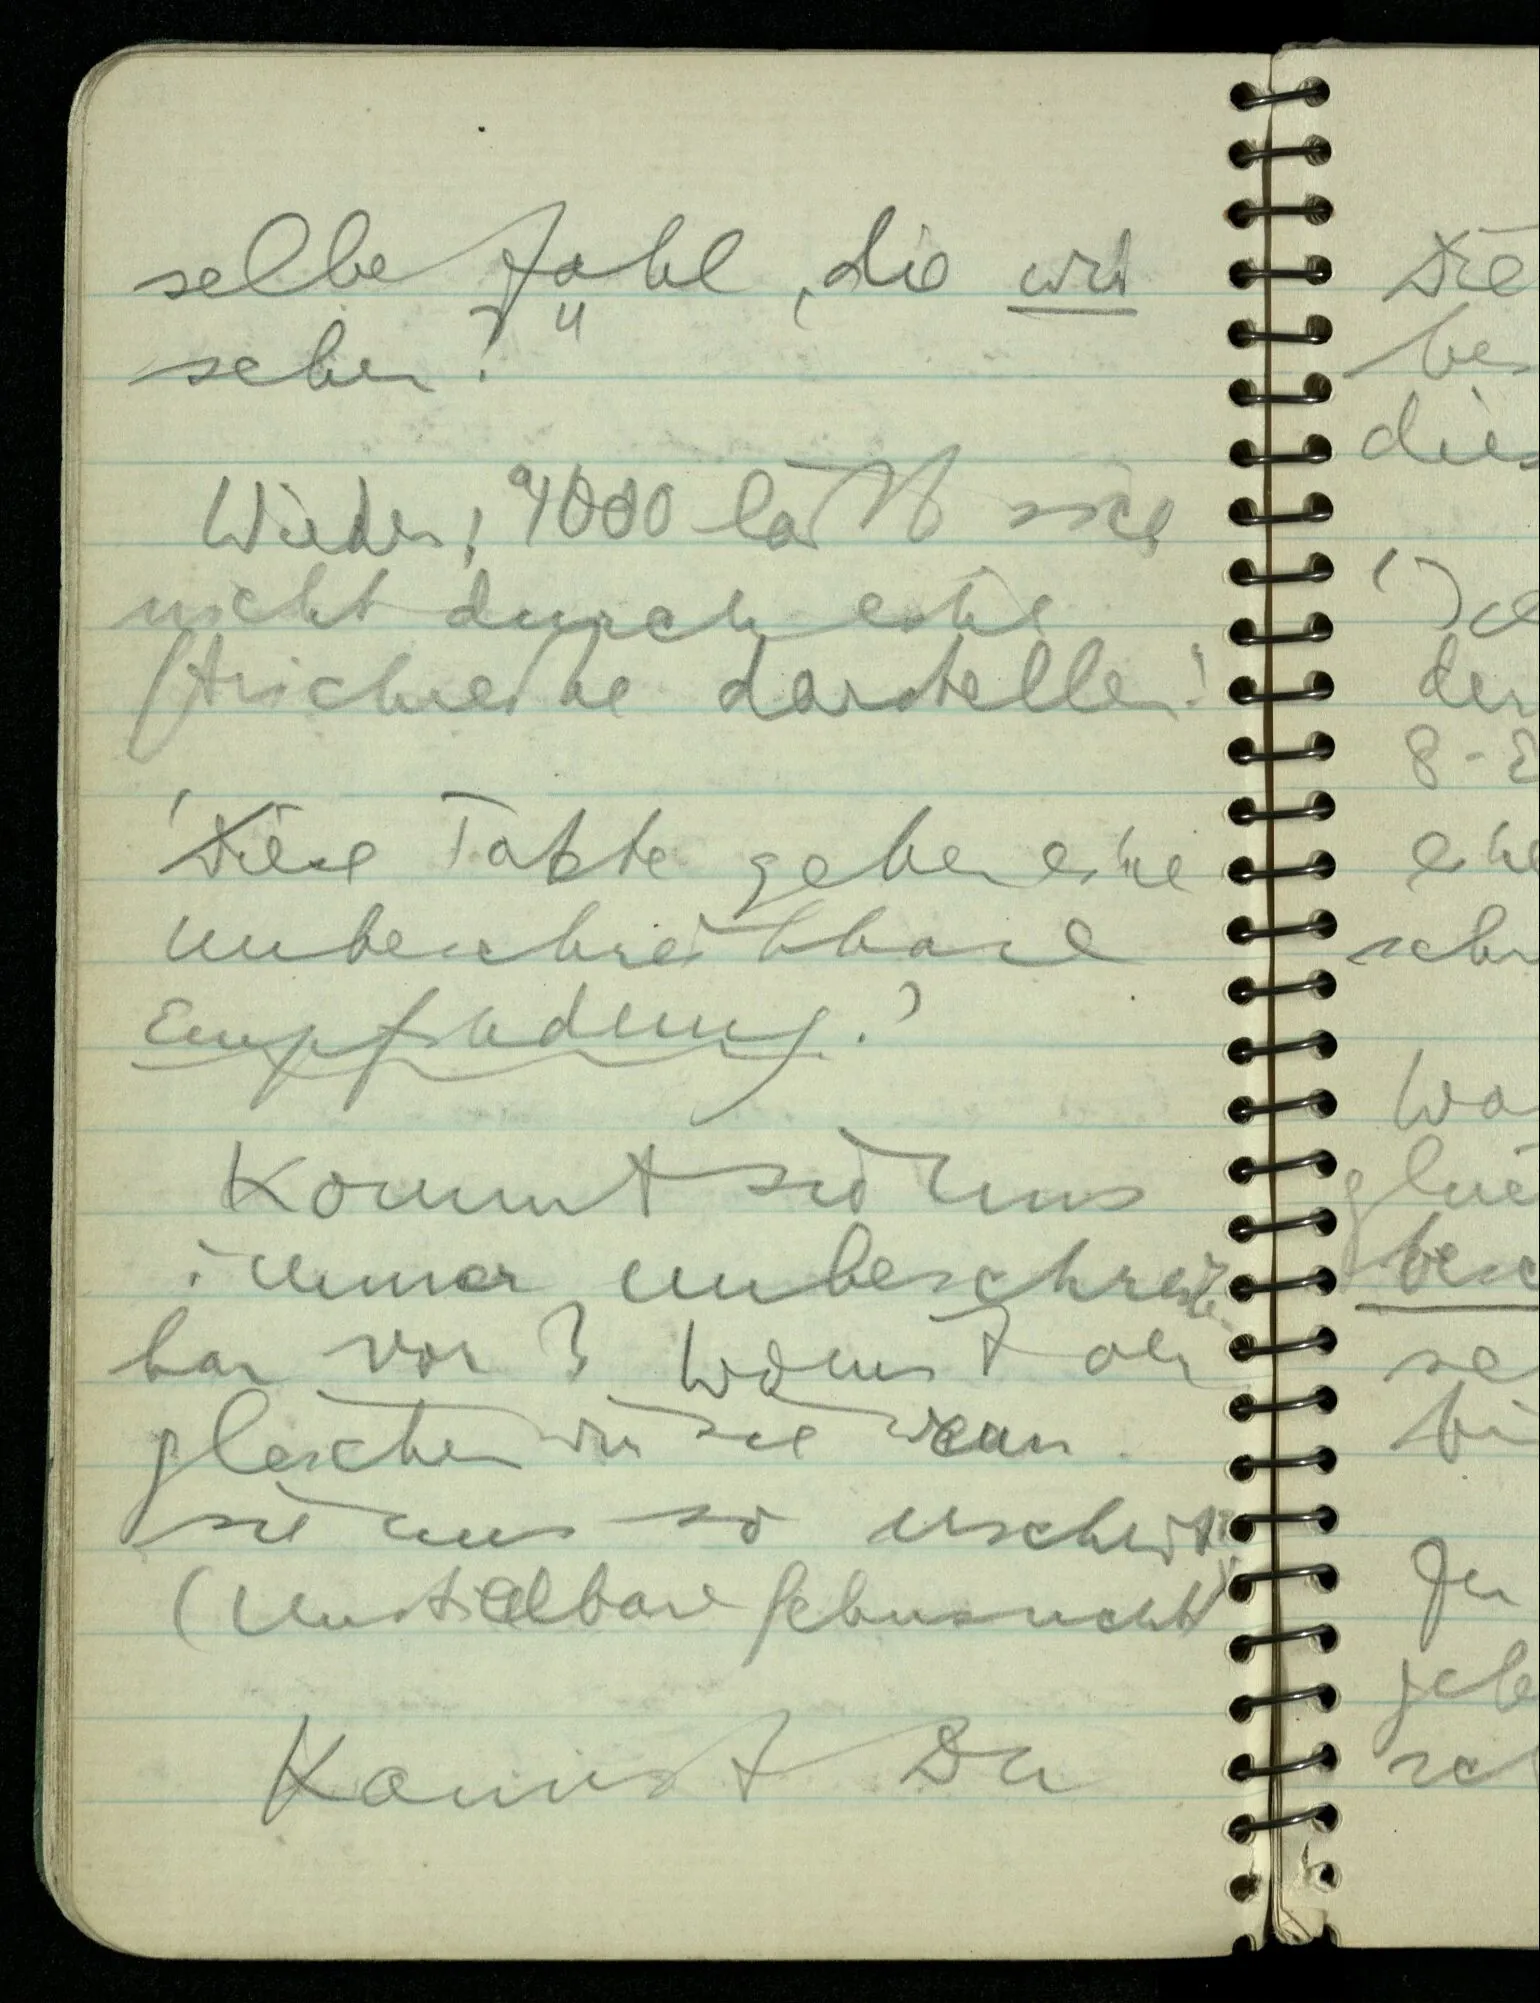 selbe Zahl, die wir
sehen?"
Wieder: 4000 läßt sich
nicht durch eine
Strichreihe darstellen!
'Diese Takte geben eine
unbeschreibbare
Empfindung.'
Kommt sie uns
immer unbeschreib-
bar vor? Womit ver
gleichen wir sie wenn
sie uns so erscheint?
(Unstillbare Sehnsucht)
Kannst Du
Die
bes
dies
der
8-E
eine
schr
Was
besc
se